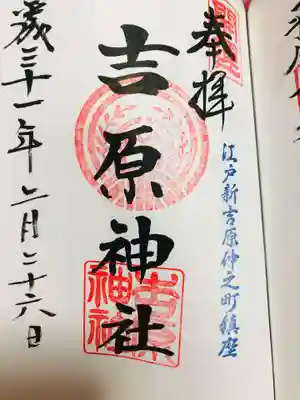 奉拝
江戸新吉原仲之町鎮座
吉原神社
吉原
神社
歳三十一年二月二十六日